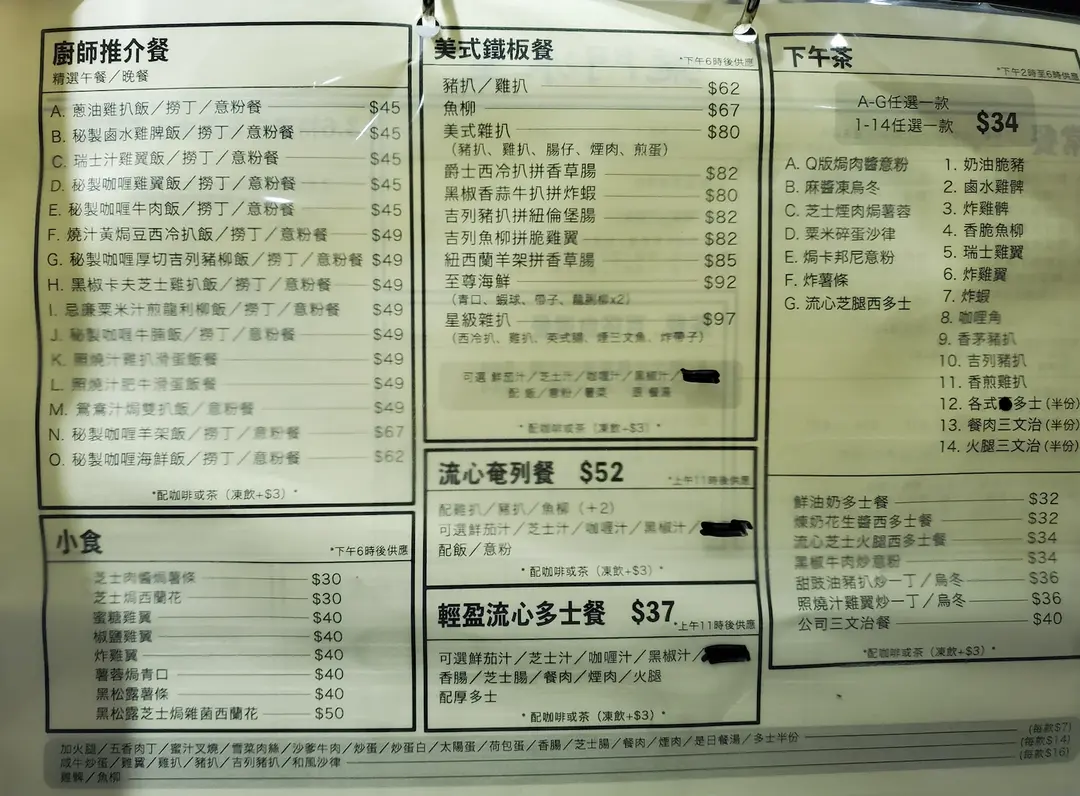 廚師推介餐
精選午餐／晚餐
A. 蔥油雞扒飯／撈丁／意粉餐 $45
B. 秘製鹵水雞脾飯／撈丁／意粉餐 $45
C. 瑞士汁雞翼飯／撈丁／意粉餐 $45
D. 秘製咖喱雞翼飯／撈丁／意粉餐 $45
E. 秘製咖喱牛肉飯／撈丁／意粉餐 $45
F. 燒汁黃焗豆西冷扒飯／撈丁／意粉餐 $49
G. 秘製咖喱厚切吉列豬柳飯／撈丁／意粉餐 $49
H. 黑椒卡夫芝士雞扒飯／撈丁／意粉餐 $49
I. 忌廉粟米汁煎龍利柳飯／撈丁／意粉餐 $49
J. 秘製咖喱牛腩飯／撈丁／意粉餐 $49
K. 照燒汁雞扒滑蛋飯餐 $49
L. 照燒汁肥牛滑蛋飯餐 $49
M. 鴛鴦汁焗雙扒飯／意粉餐 $49
N. 秘製咖喱羊架飯／撈丁／意粉餐 $67
O. 秘製咖喱海鮮飯／撈丁／意粉餐 $62
*配咖啡或茶（凍飲+$3）*
小食
*下午6時後供應
芝士肉醬焗薯條 $30
芝士焗西蘭花 $30
蜜糖雞翼 $40
椒鹽雞翼 $40
炸雞翼 $40
薯蓉焗青口 $40
黑松露薯條 $40
黑松露芝士焗雜菌西蘭花 $50
美式鐵板餐
*下午6時後供應
豬扒／雞扒 $62
魚柳 $67
美式雜扒 $80
（豬扒、雞扒、腸仔、煙肉、煎蛋）
爵士西冷扒拼香草腸 $82
黑椒香蒜牛扒拼炸蝦 $80
吉列豬扒拼紐倫堡腸 $82
吉列魚柳拼脆雞翼 $82
紐西蘭羊架拼香草腸 $85
至尊海鮮 $92
（青口、蝦球、帶子、龍脷柳x2）
星級雜扒 $97
（西冷扒、雞扒、英式腸、煙三文魚、炸帶子）
可選 鮮茄汁／芝士汁／咖喱汁／黑椒汁／
配 飯／意粉／薯菜 跟 餐湯
* 配咖啡或茶（凍飲+$3）*
流心奄列餐 $52
*上午11時後供應
配雞扒／豬扒／魚柳（+2）
可選鮮茄汁／芝士汁／咖喱汁／黑椒汁／
配飯／意粉
* 配咖啡或茶（凍飲+$3）*
輕盈流心多士餐 $37
*上午11時後供應
可選鮮茄汁／芝士汁／咖喱汁／黑椒汁／
香腸／芝士腸／餐肉／煙肉／火腿
配厚多士
* 配咖啡或茶（凍飲+$3）*
下午茶
*下午2時至6時供應
A-G任選一款
1-14任選一款 $34
A. Q版焗肉醬意粉
B. 麻醬凍烏冬
C. 芝士煙肉焗薯蓉
D. 粟米碎蛋沙律
E. 焗卡邦尼意粉
F. 炸薯條
G. 流心芝腿西多士
1. 奶油脆豬
2. 鹵水雞髀
3. 炸雞髀
4. 香脆魚柳
5. 瑞士雞翼
6. 炸雞翼
7. 炸蝦
8. 咖喱角
9. 香茅豬扒
10. 吉列豬扒
11. 香煎雞扒
12. 各式多士(半份)
13. 餐肉三文治(半份)
14. 火腿三文治(半份)
鮮油奶多士餐 $32
煉奶花生醬西多士餐 $32
流心芝士火腿西多士餐 $34
黑椒牛肉炒意粉 $34
甜豉油豬扒炒一丁／烏冬 $36
照燒汁雞翼炒一丁／烏冬 $36
公司三文治餐 $40
*配咖啡或茶（凍飲+$3）*
加火腿／五香肉丁／蜜汁叉燒／雪菜肉絲／沙爹牛肉／炒蛋／炒蛋白／太陽蛋／荷包蛋／香腸／芝士腸／餐肉／煙肉／是日餐湯／多士半份 (每款$7)
咸牛炒蛋／雞翼／雞扒／豬扒／吉列豬扒／和風沙律 (每款$14)
雞髀／魚柳 (每款$16)